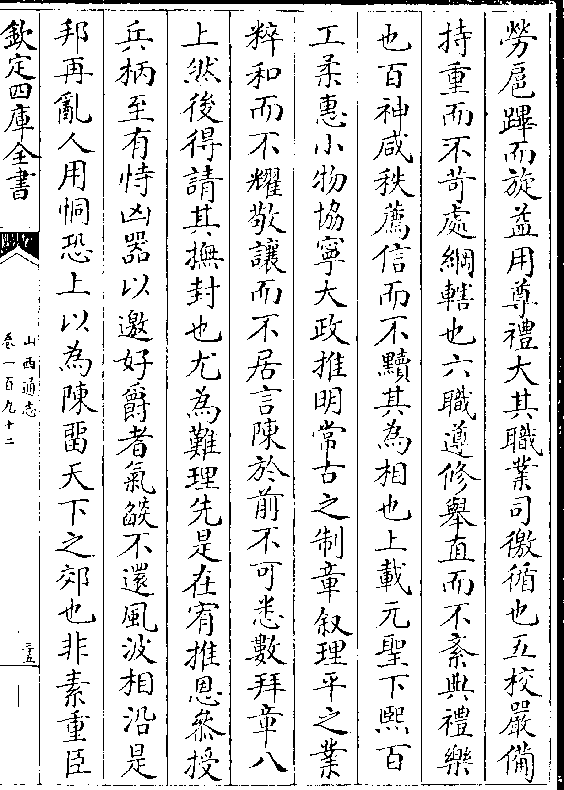 勞扈蹕而旋益用尊禮大其職業司徼循也五校嚴備
持重而不苛處綱轄也六職遵修舉直而不紊典禮樂
也百神咸秩薦信而不黷其為相也上載元聖下熙百
工柔惠小物協寧大政推明常古之制章叙理平之業
粹和而不耀敬讓而不居言陳於前不可悉數拜章八
上然後得請其撫封也尤為難理先是在宥推恩叅授
兵柄至有恃凶器以邀好爵者氣燄不還風波相沿是
邦再亂人用恫恐上以為陳留天下之郊也非素重臣
欽定四庫全書
山西通志
卷一百九十二
二十五